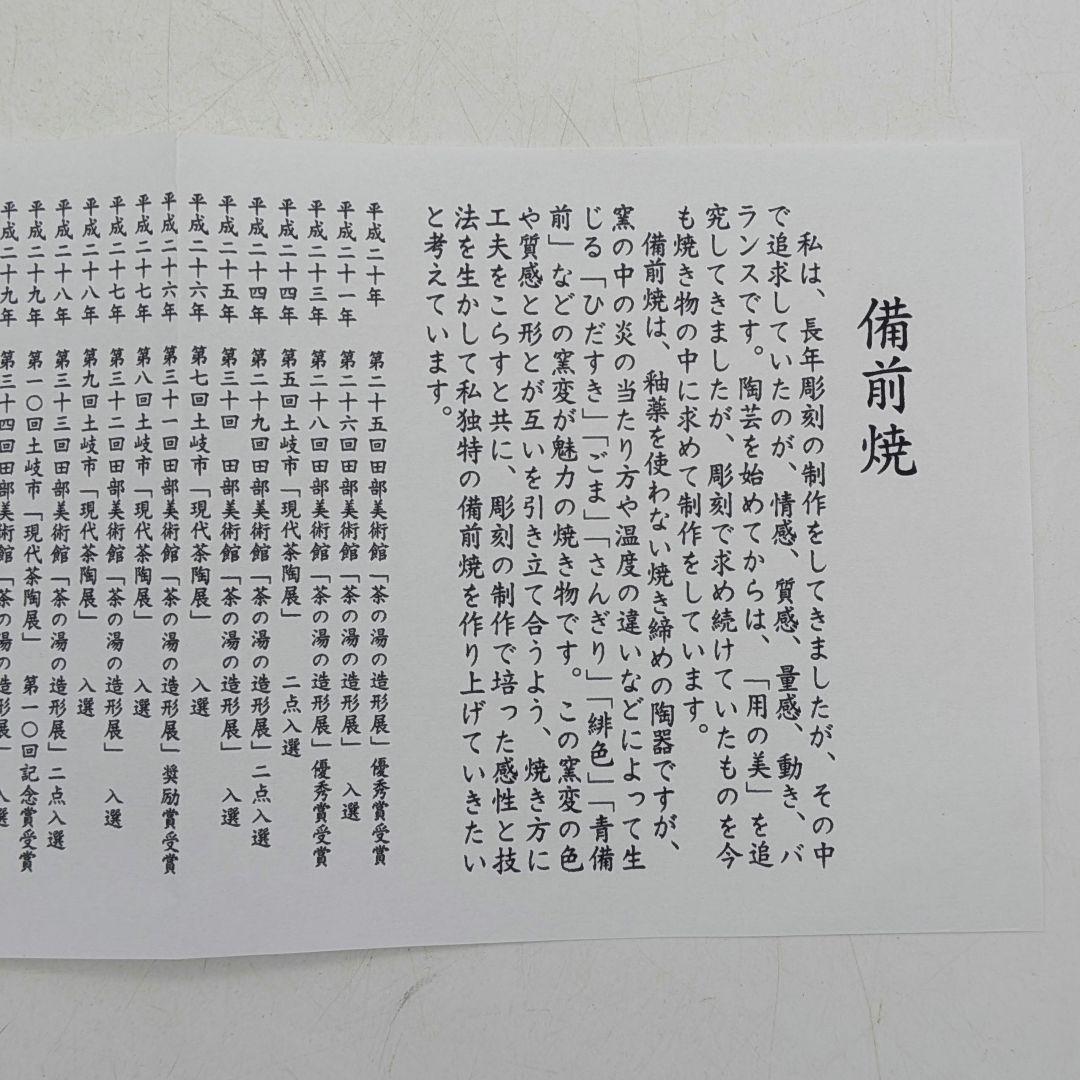 備前焼
私は、長年彫刻の制作をしてきましたが、その中
で追求していたのが、情感、質感、量感、動き、バ
ランスです。陶芸を始めてからは、「用の美」を追
究してきましたが、彫刻で求め続けていたものを今
も焼き物の中に求めて制作をしています。
備前焼は、釉薬を使わない焼き締めの陶器ですが、
窯の中の炎の当たり方や温度の違いなどによって生
じる「ひだすき」「ごま」「さんぎり」「緋色」「青備
前」などの窯変が魅力の焼き物です。この窯変の色
や質感と形とが互いを引き立て合うよう、焼き方に
工夫をこらすと共に、彫刻の制作で培った感性と技
法を生かして私独特の備前焼を作り上げていきたい
と考えています。
平成二十年 第二十五回田部美術館「茶の湯の造形展」優秀賞受賞
平成二十一年 第二十六回田部美術館「茶の湯の造形展」 入選
平成二十三年 第二十八回田部美術館「茶の湯の造形展」優秀賞受賞
平成二十四年 第五回土岐市「現代茶陶展」 二点入選
平成二十四年 第二十九回田部美術館「茶の湯の造形展」二点入選
平成二十五年 第三十回 田部美術館「茶の湯の造形展」 入選
平成二十六年 第七回土岐市「現代茶陶展」 入選
平成二十六年 第三十一回田部美術館「茶の湯の造形展」奨励賞受賞
平成二十七年 第八回土岐市「現代茶陶展」 入選
平成二十七年 第三十二回田部美術館「茶の湯の造形展」 入選
平成二十八年 第九回土岐市「現代茶陶展」 入選
平成二十八年 第三十三回田部美術館「茶の湯の造形展」二点入選
平成二十九年 第一〇回土岐市「現代茶陶展」 第一〇回記念賞受賞
平成二十九年 第三十四回田部美術館「茶の湯の造形展」 入選